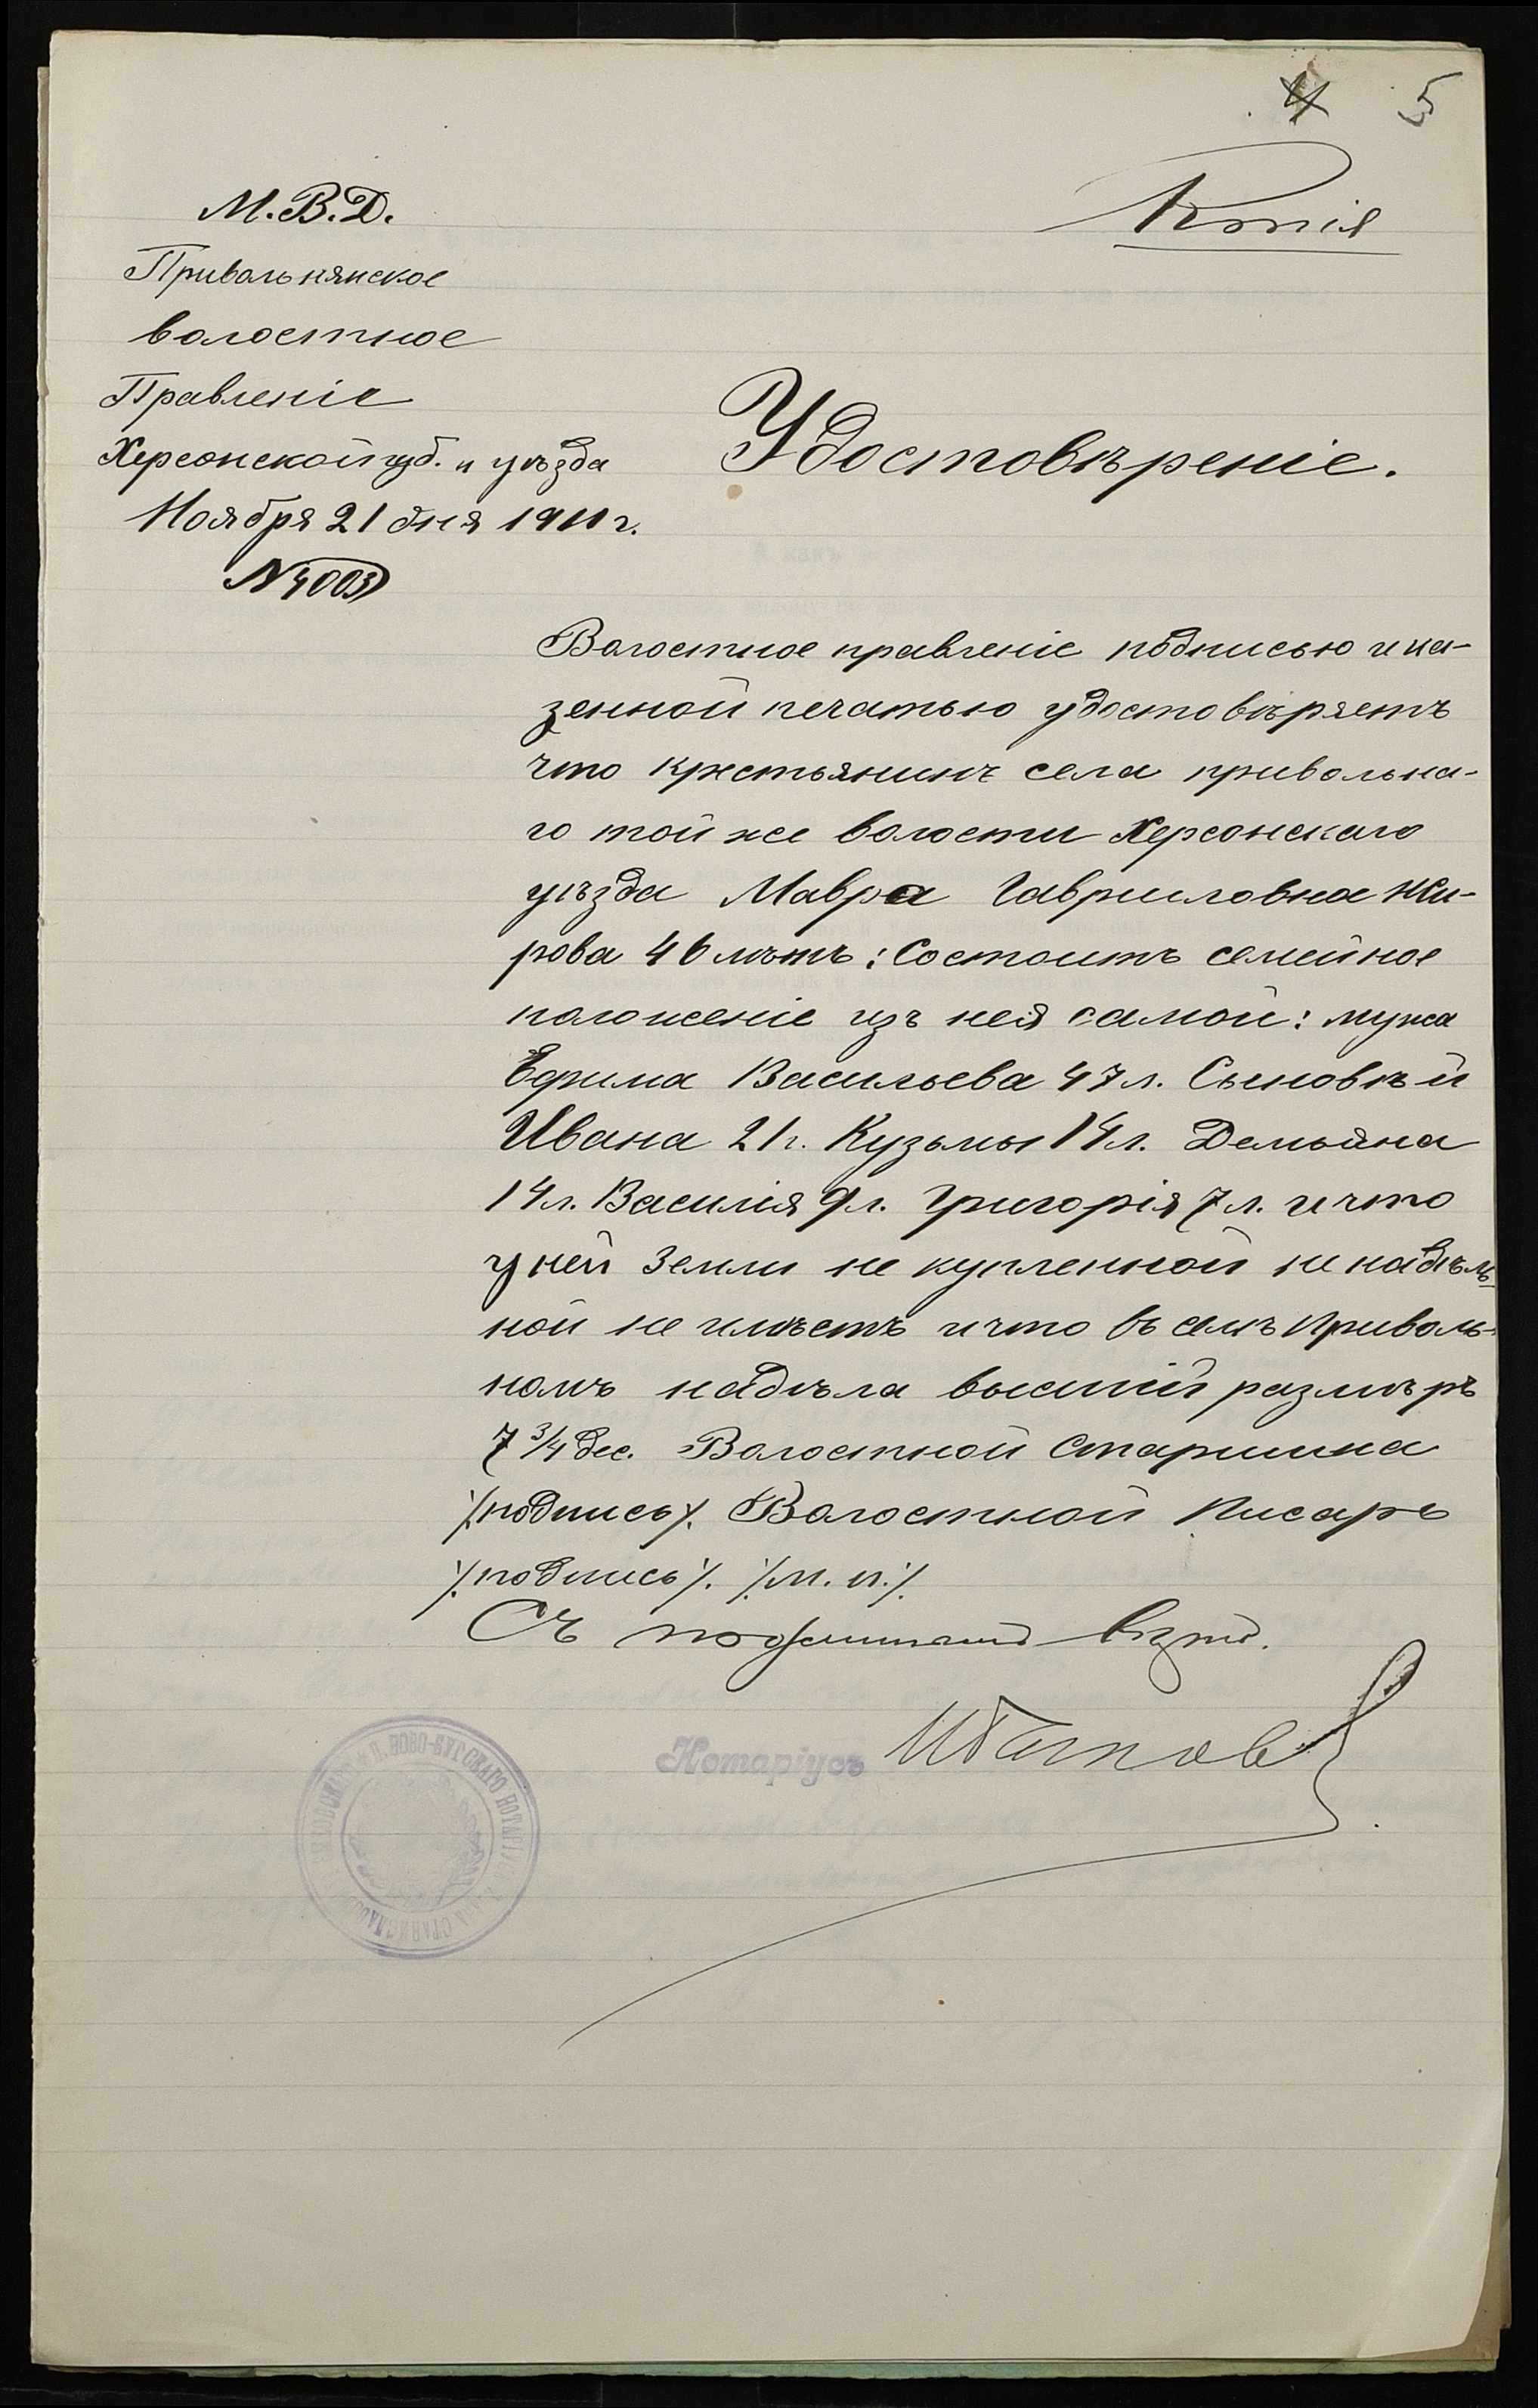 4 5
Копія
М.В.Д.
Привольнянское
волостное
Правленіе
Херсонской губ. и уѣзда
Ноября 21 дня 1911 г.
№ 4003
Удостовѣреніе.
Волостное правленіе подписью и ка-
зенной печатью удостовѣряетъ
что крестьянинъ села привольна-
го той же волости Херсонскаго
уѣзда Мавра Гавриловна Жи-
рова 46 лѣтъ: Состоитъ семейное
положеніе изъ нея самой: мужа
Ефима Васильева 47 л. Сыновѣй
Ивана 21 г. Кузьмы 14 л. Демьяна
14 л. Василія 9 л. Григорія 7 л. и что
у ней Земли не купленной не надѣль
ной не имѣетъ и что въ селѣ Приволь-
номъ надѣла высшій размѣръ
7 3/4 дес. Волостной Старшина
/подпись/. Волостной Писарь
/подпись/. /м. п./.
Съ
Нотаріусъ
НОВО-БУГСКАГО НОТАРІУСА